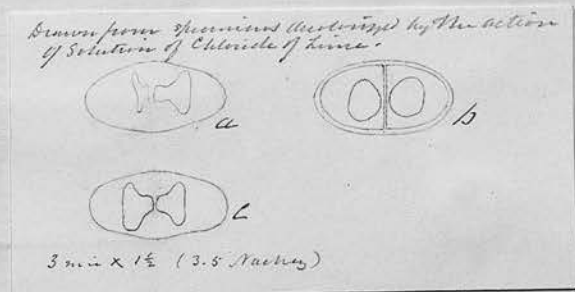 Drawn from specimens decolorized by the action
of Solution of Chloride of Lime.
a
b
c
3 mic x 1½ (3.5 Nachez)